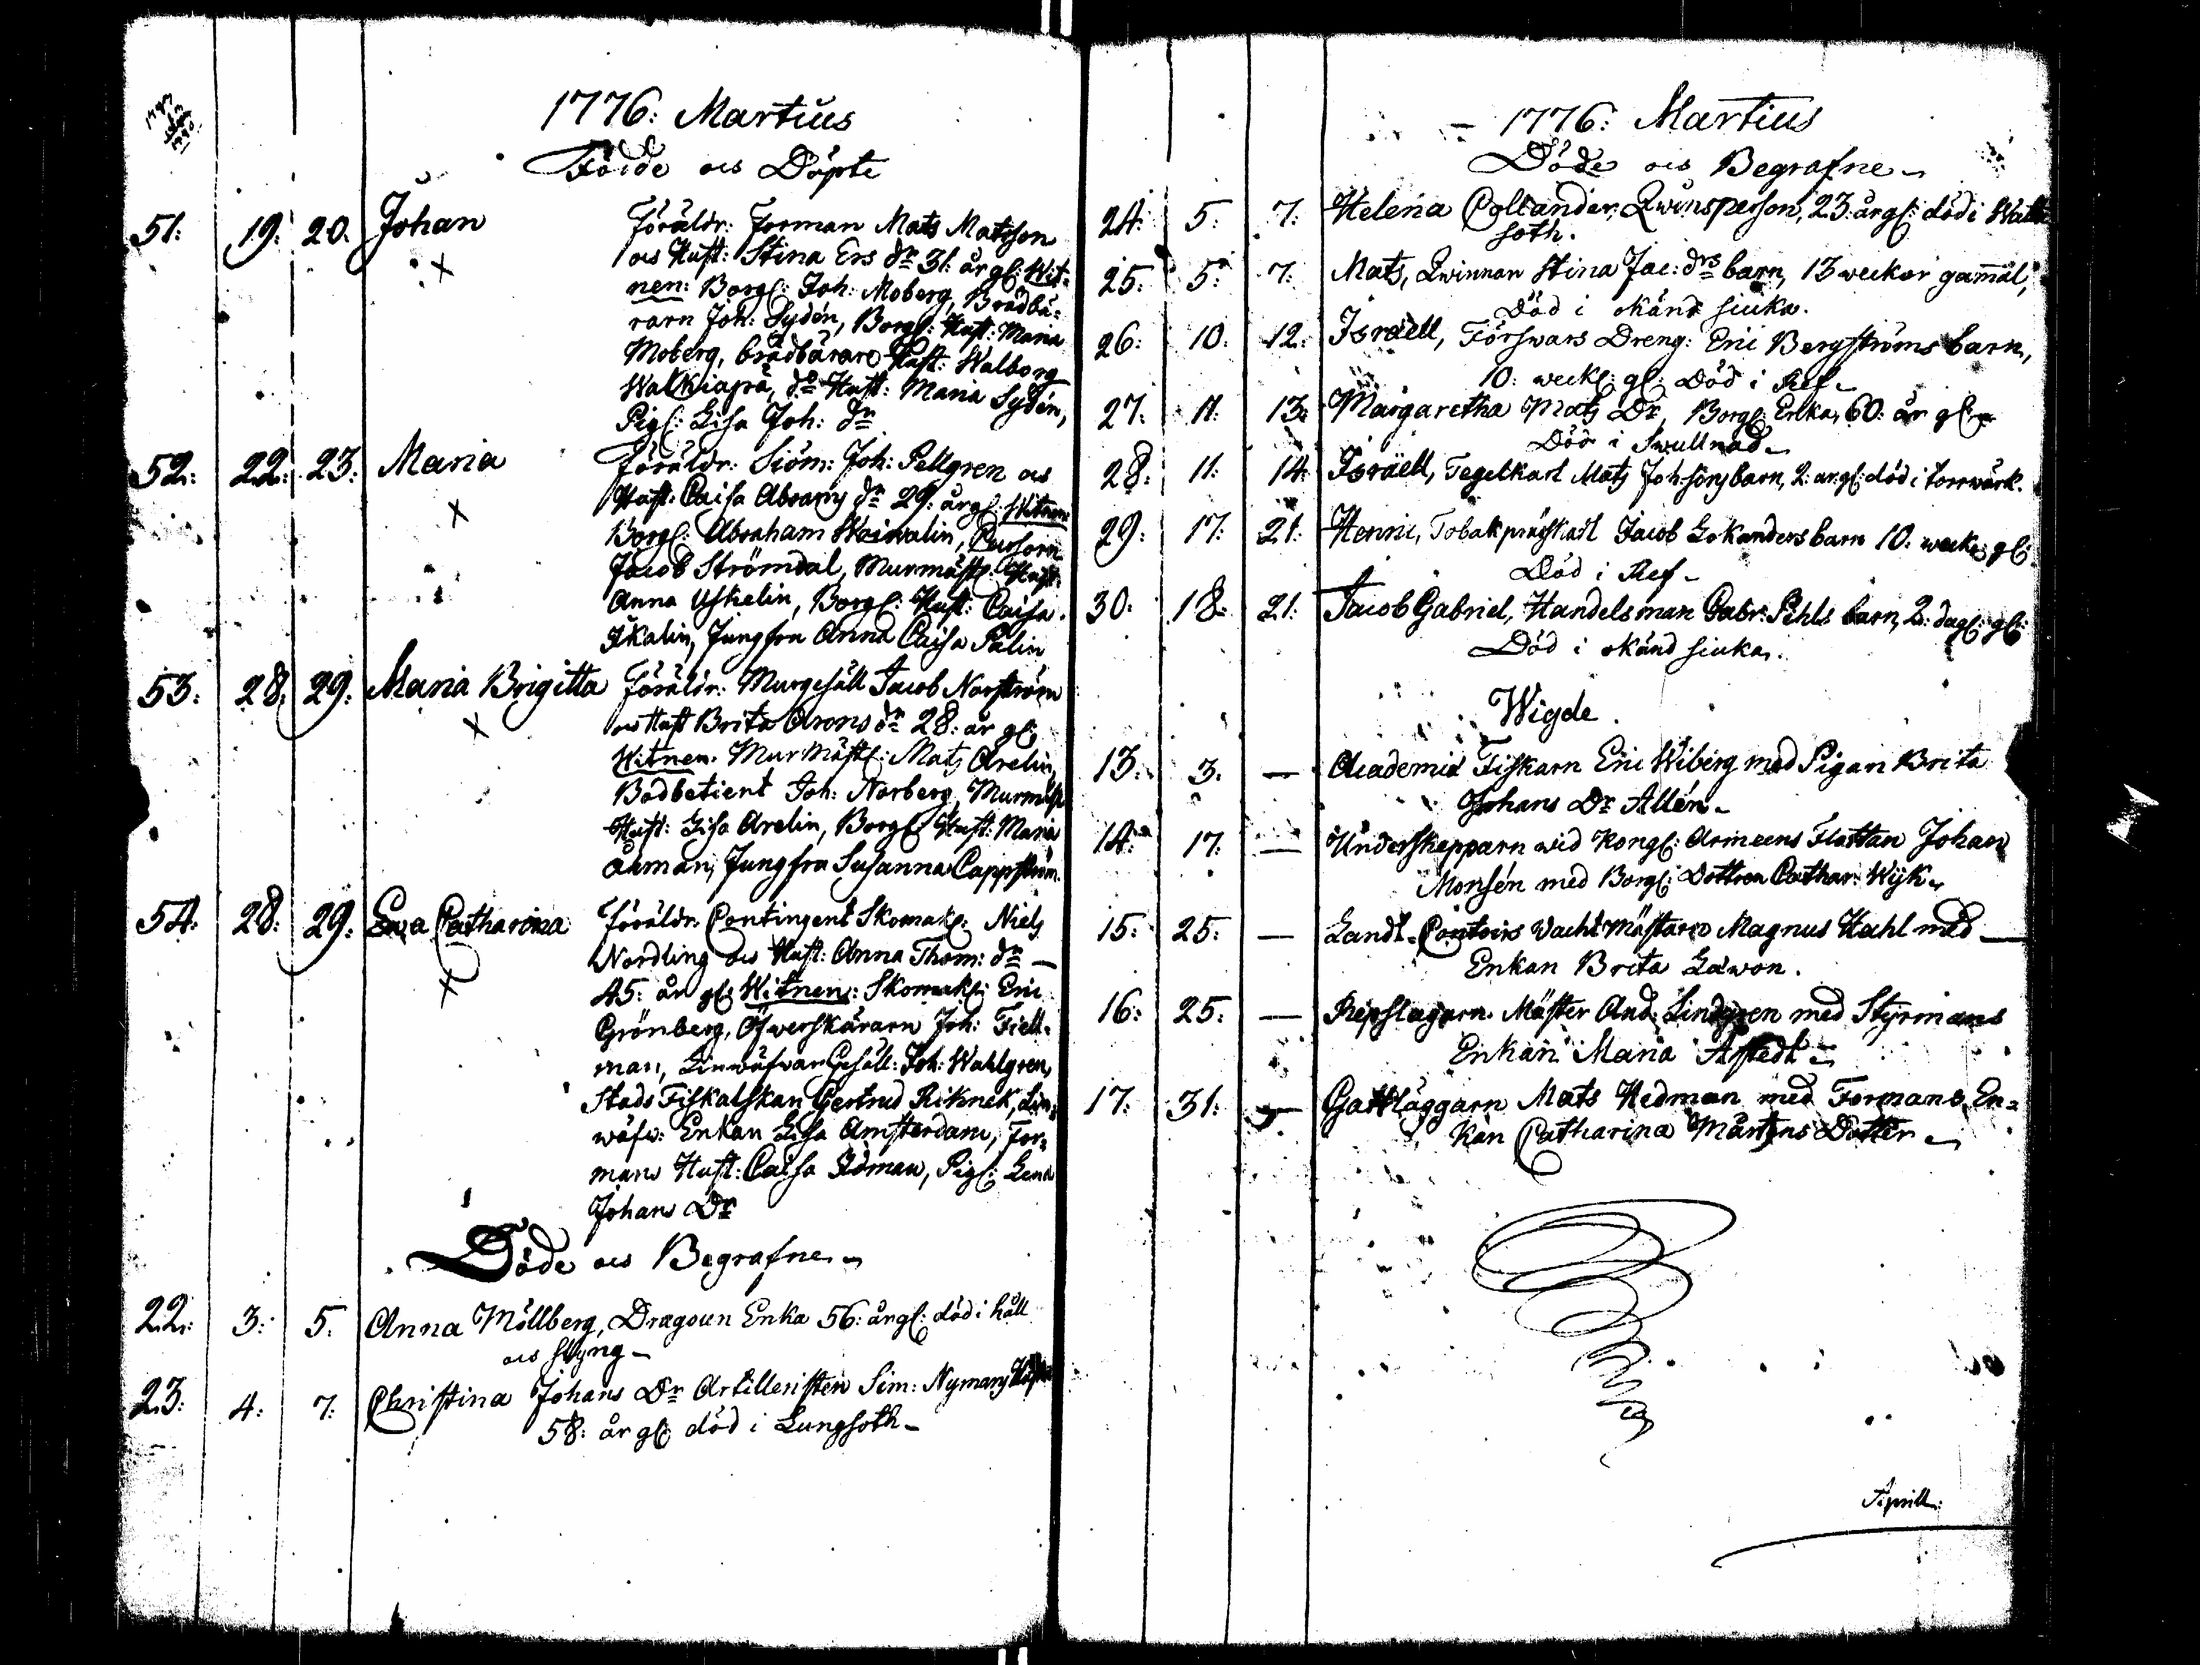 1776: Martius
Födde och Döpte
51: 19: 20. Johan Föräldr: Forman Mats Matsson
och Hust: Stina Ers dr 31: år gl: Wit-
nen: Borgl: Joh: Moberg, Brädbä-
raren Joh: Sydén, Borgl: Hust: Maria
Moberg, brädbärare Hust: Walborg
Walkiapä, do Hust: Maria Sydén,
Pigl: Lisa Joh: dr
52: 22: 23: Maria Föräldr: Siöm: Joh: Pellgren och
Hust: Caisa Abrams dr 29: år gl: Witnen:
Borgl: Abraham Waiwalin,
Jacob Strömdal, Murmäst: Hust:
Anna Uskelin, Borgl: Hust: Caisa
Ikalin, Jungfru Anna Caisa Palin
53: 28: 29: Maria Brigitta Föräldr: Murgesäll Jacob Norström
och Hust Brita Arons dr 28: år gl:
Witnen: Murmästl: Mats Arelin,
Bodbetient Joh: Norberg, Murmäst
Hust: Lisa Arelin, Borgl: Hust: Maria
Åhman, Jungfru Susanna Cappström.
54: 28: 29: Ewa Catharina Föräldr: Contingent Skomakl: Niels
Nordling och Hust: Anna Thom: dr —
45: år gl: Witnen: Skomakl: Eric
Grönberg, Öfwerskäraren Joh: Fiell-
man, Linwäfwar Gesäll: Joh: Wahlgren,
Stads Fiskalskan Gertrud Riknek, Lin-
wäfw: Enkan Lisa Amsterdam, For-
mans Hust: Caisa Idman, Pigl: Lena
Johans Dr
Döde och Begrafne
22: 3: 5. Anna Möllberg, Dragoun Enka 56: år gl: död i håll
och styng —
23: 4: 7: Christina Johans Dr Artilleristen Sim: Nymans Hust
58: år gl: död i Lungsoth —
— 1776: Martius
Döde och Begrafne —
24: 5: 7: Helena Collander, Qwinsperson, 23: år gl: död i Watt-
soth.
25: 5: 7: Mats, Qwinnan Stina Jac: drs barn, 13 weckor gam̄al,
Död i okänd siuka.
26: 10: 12: Israell, Förswars Dreng: Eric Bergströms barn,
10: weckl: gl: Död i Ref —
27: 11: 13: Margaretha Mats Dr, Borgl: Enka, 60: år gl:
Död i Swullnad —
28: 11: 14: Israell, Tegelkarl Mats Joh:sons barn, 2: år gl: död i torrwärk.
29: 17: 21: Henric, Tobaksprässkarl Jacob Lokanders barn 10. weckl: gl:
Död i Ref —
30: 18: 21: Jacob Gabriel, Handelsman Gabr: Pihls barn, 2: dagl: gl:
Död i okänd siuka.
Wigde
13: 3: — Academie Fiskarn Eric Wiberg med Pigan Brita
Johans Dr Allén —
14: 17: — Underskepparn wid Kongl: Armeens Flottan Johan
Monsén med Borgl: Dottren Cathar: Wijk
15: 25: — Landt-Contoirs Wachtmästaren Magnus Hahl med —
Enkan Brita Lawon.
16: 25: — Repslagarn. Mäster And: Lindgren med Styrmans
Enkan Maria
17: 31: — Gattläggarn Mats Hedman med Formans En-
kan Catharina Mårtens Dotter —
Aprill: